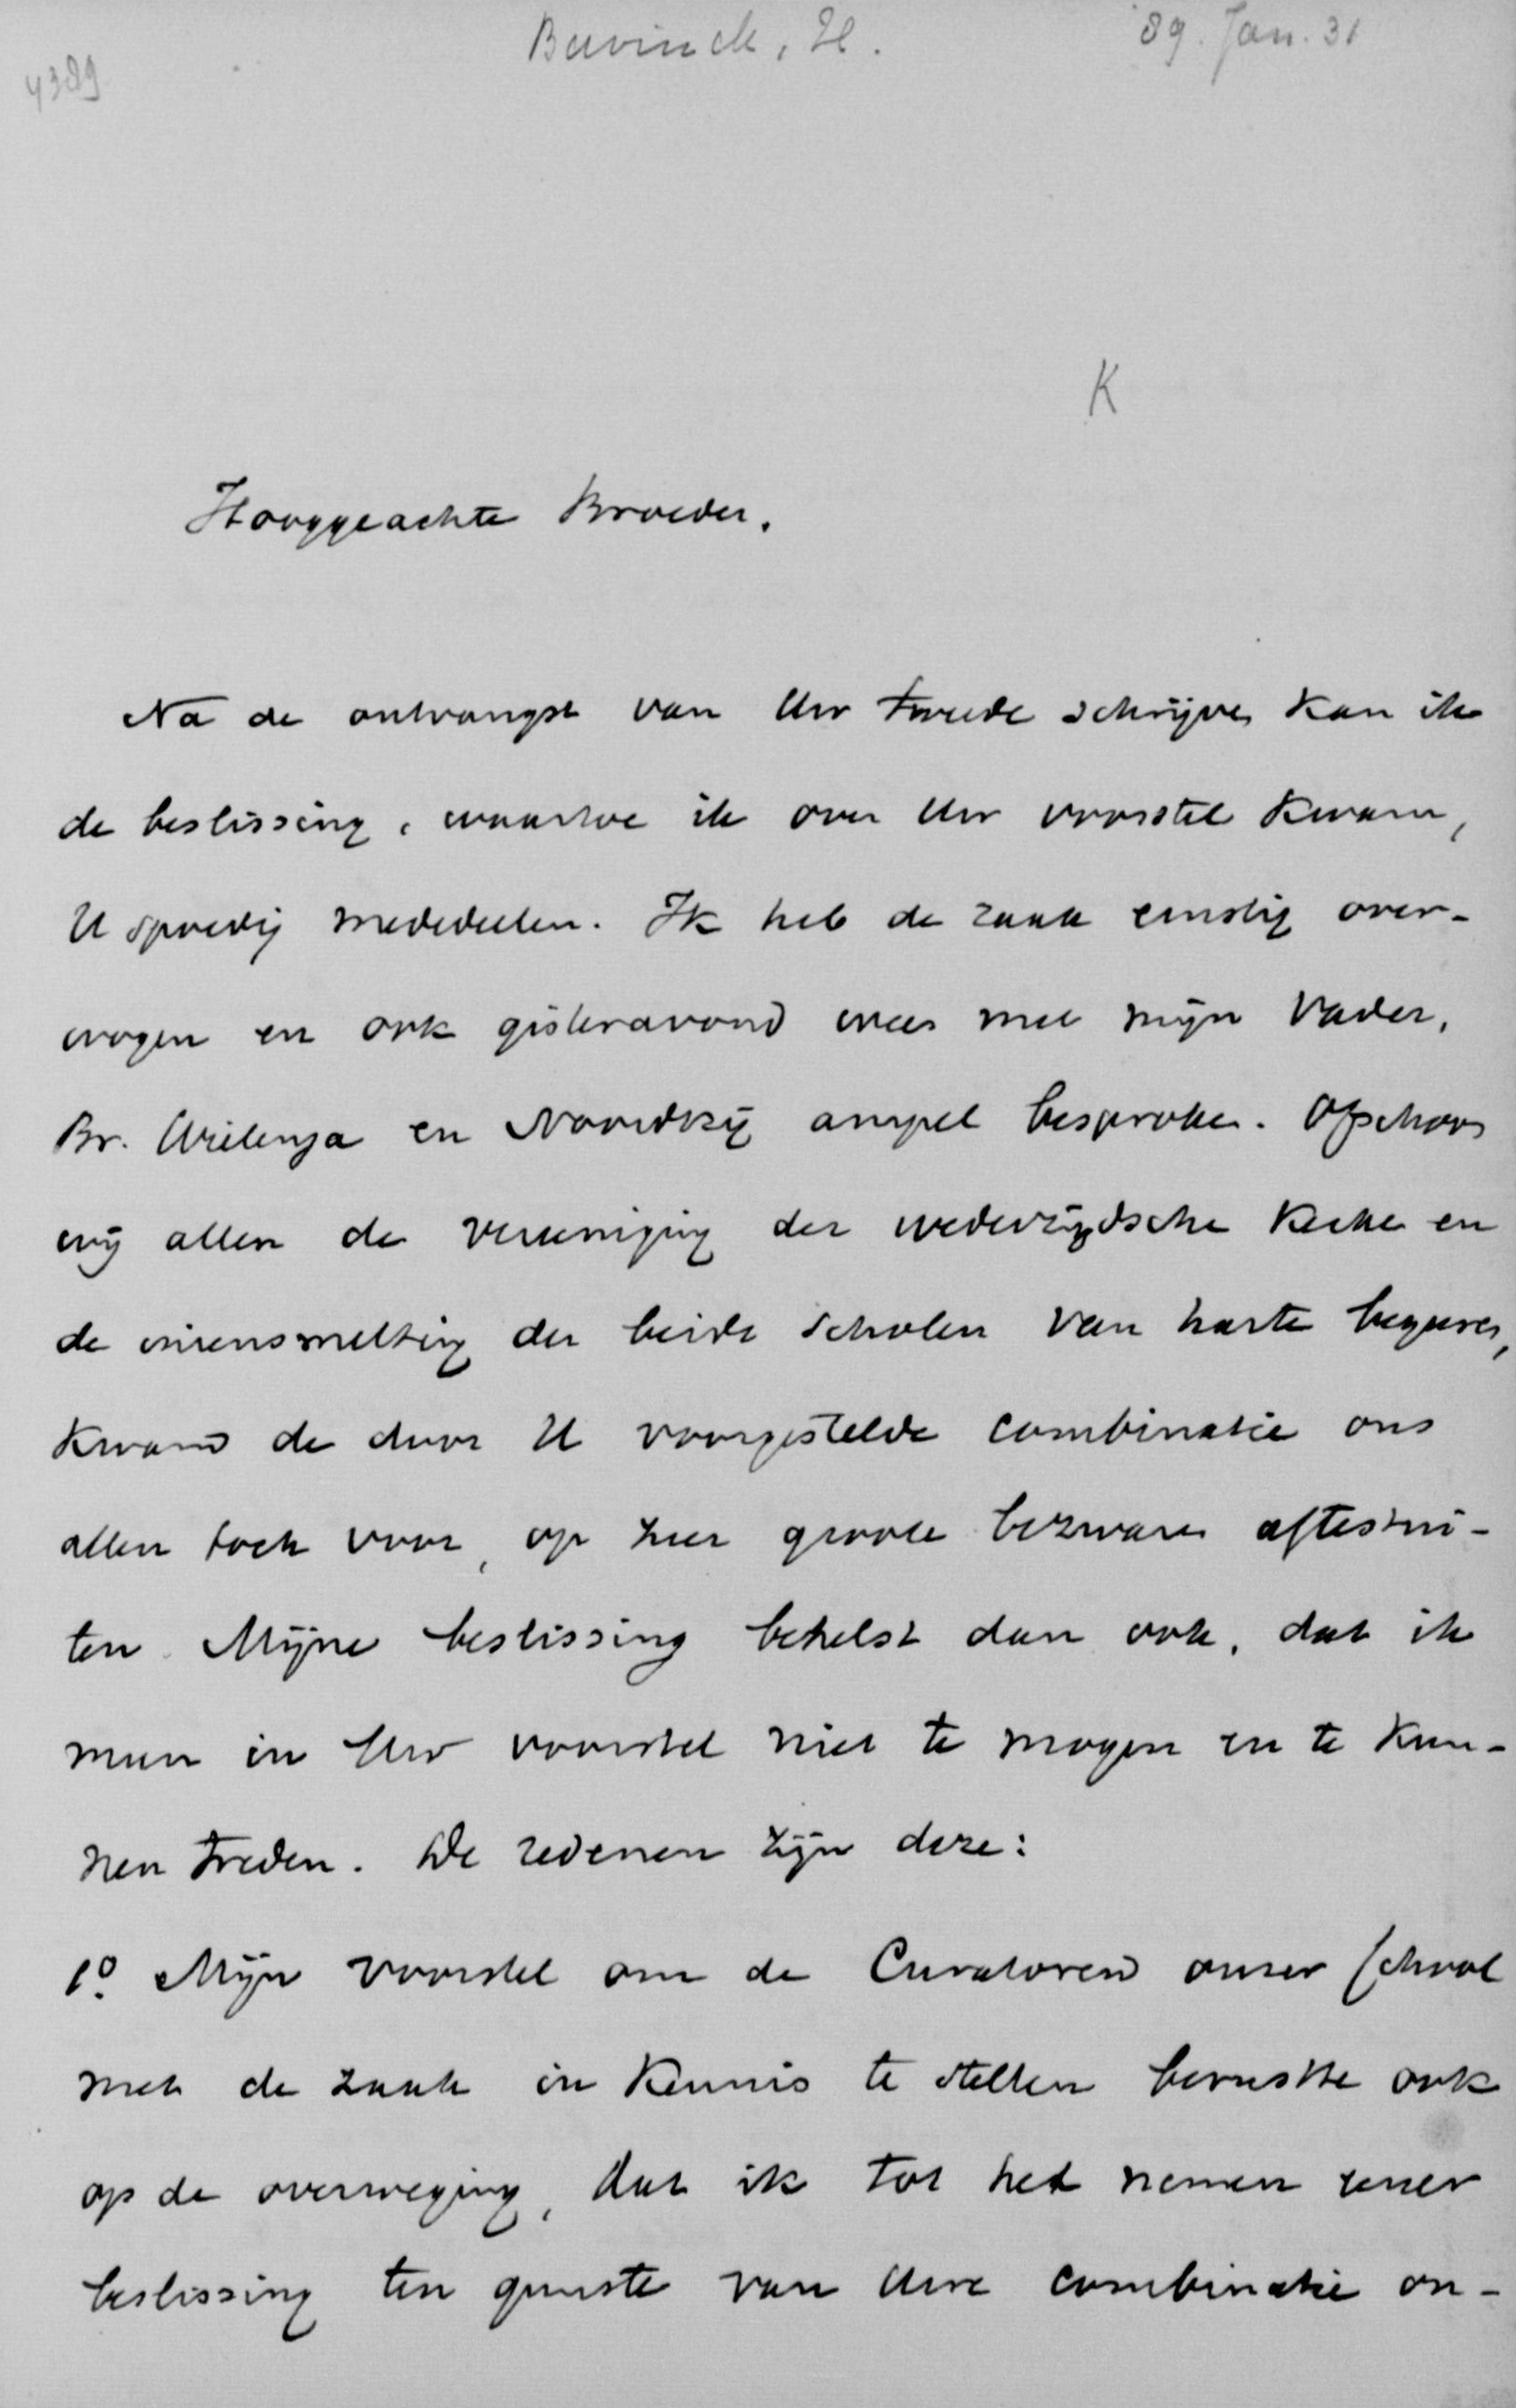 Bavinck, H.
'89. Jan. 31
4389
K
Hooggeachte Broeder.
Na de ontvangst van Uw tweede schrijven kan ik
de beslissing, waartoe ik over Uw voorstel kwam,
U spoedig mededeelen. Ik heb de zaak ernstig over-
wogen en ook gisteravond met mijn Vader,
Br. Wielenga en Noordtzij ampel besproken. Ofschoon
wij allen de vereeniging der wederzijdsche kerken en
de ineensmelting der beide Scholen van harte begeeren,
kwam de door U voorgestelde combinatie ons
allen toch voor, op zeer groote bezwaren aftestui-
ten. Mijne beslissing behelst dan ook, dat ik
meen in Uw voorstel niet te mogen en te kun-
nen treden. De redenen zijn deze:
1º. Mijn voorstel om de Curatoren onzer School
met de zaak in kennis te stellen berustte ook
op de overweging, dat ik tot het nemen eener
beslissing ten gunste van Uwe combinatie on-